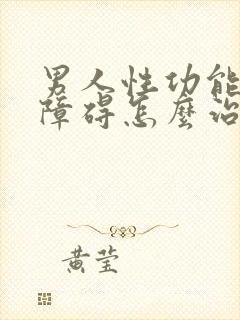 男人性功能
障碍怎麼治
黄莹